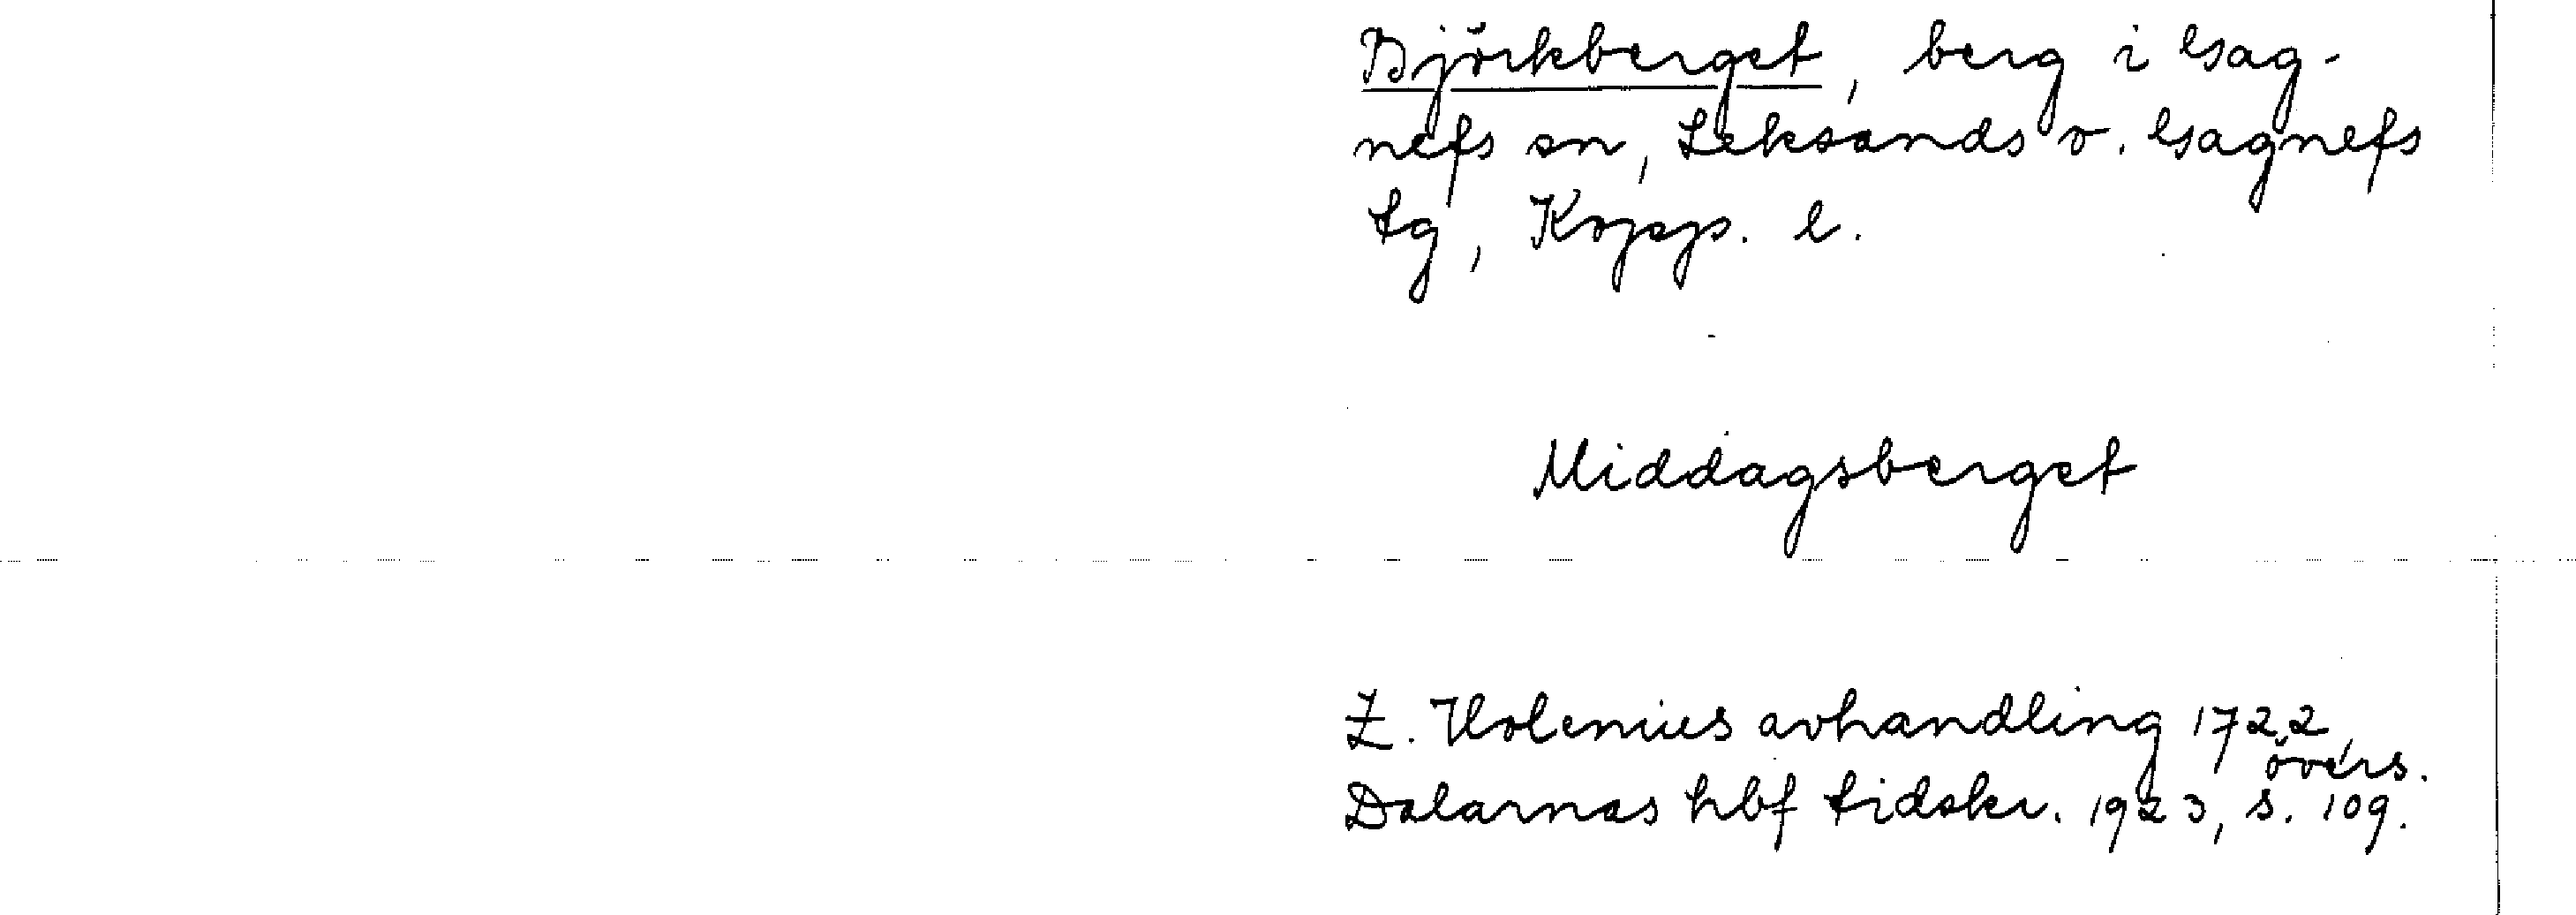 Björkberget, berg i Gag-
nefs sn, Leksands o. Gagnefs
tg, Kopps. l.
Middagsberget
Z. Holenius avhandling 1722,
övers.
Dalarnas hbf tidskr. 1923, s. 109.